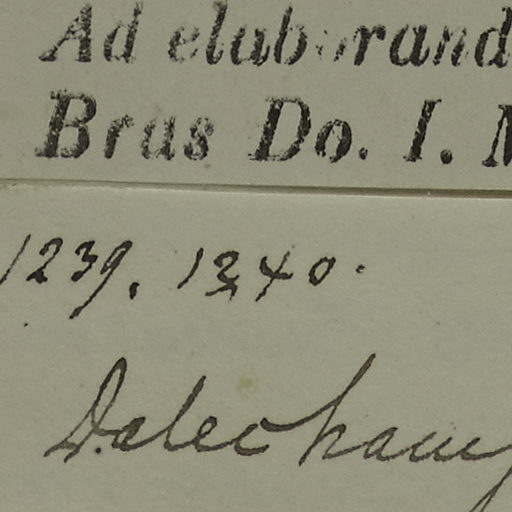 Ad elaborand
Bras Do. I. M
1239. 1240.
Dalechamp